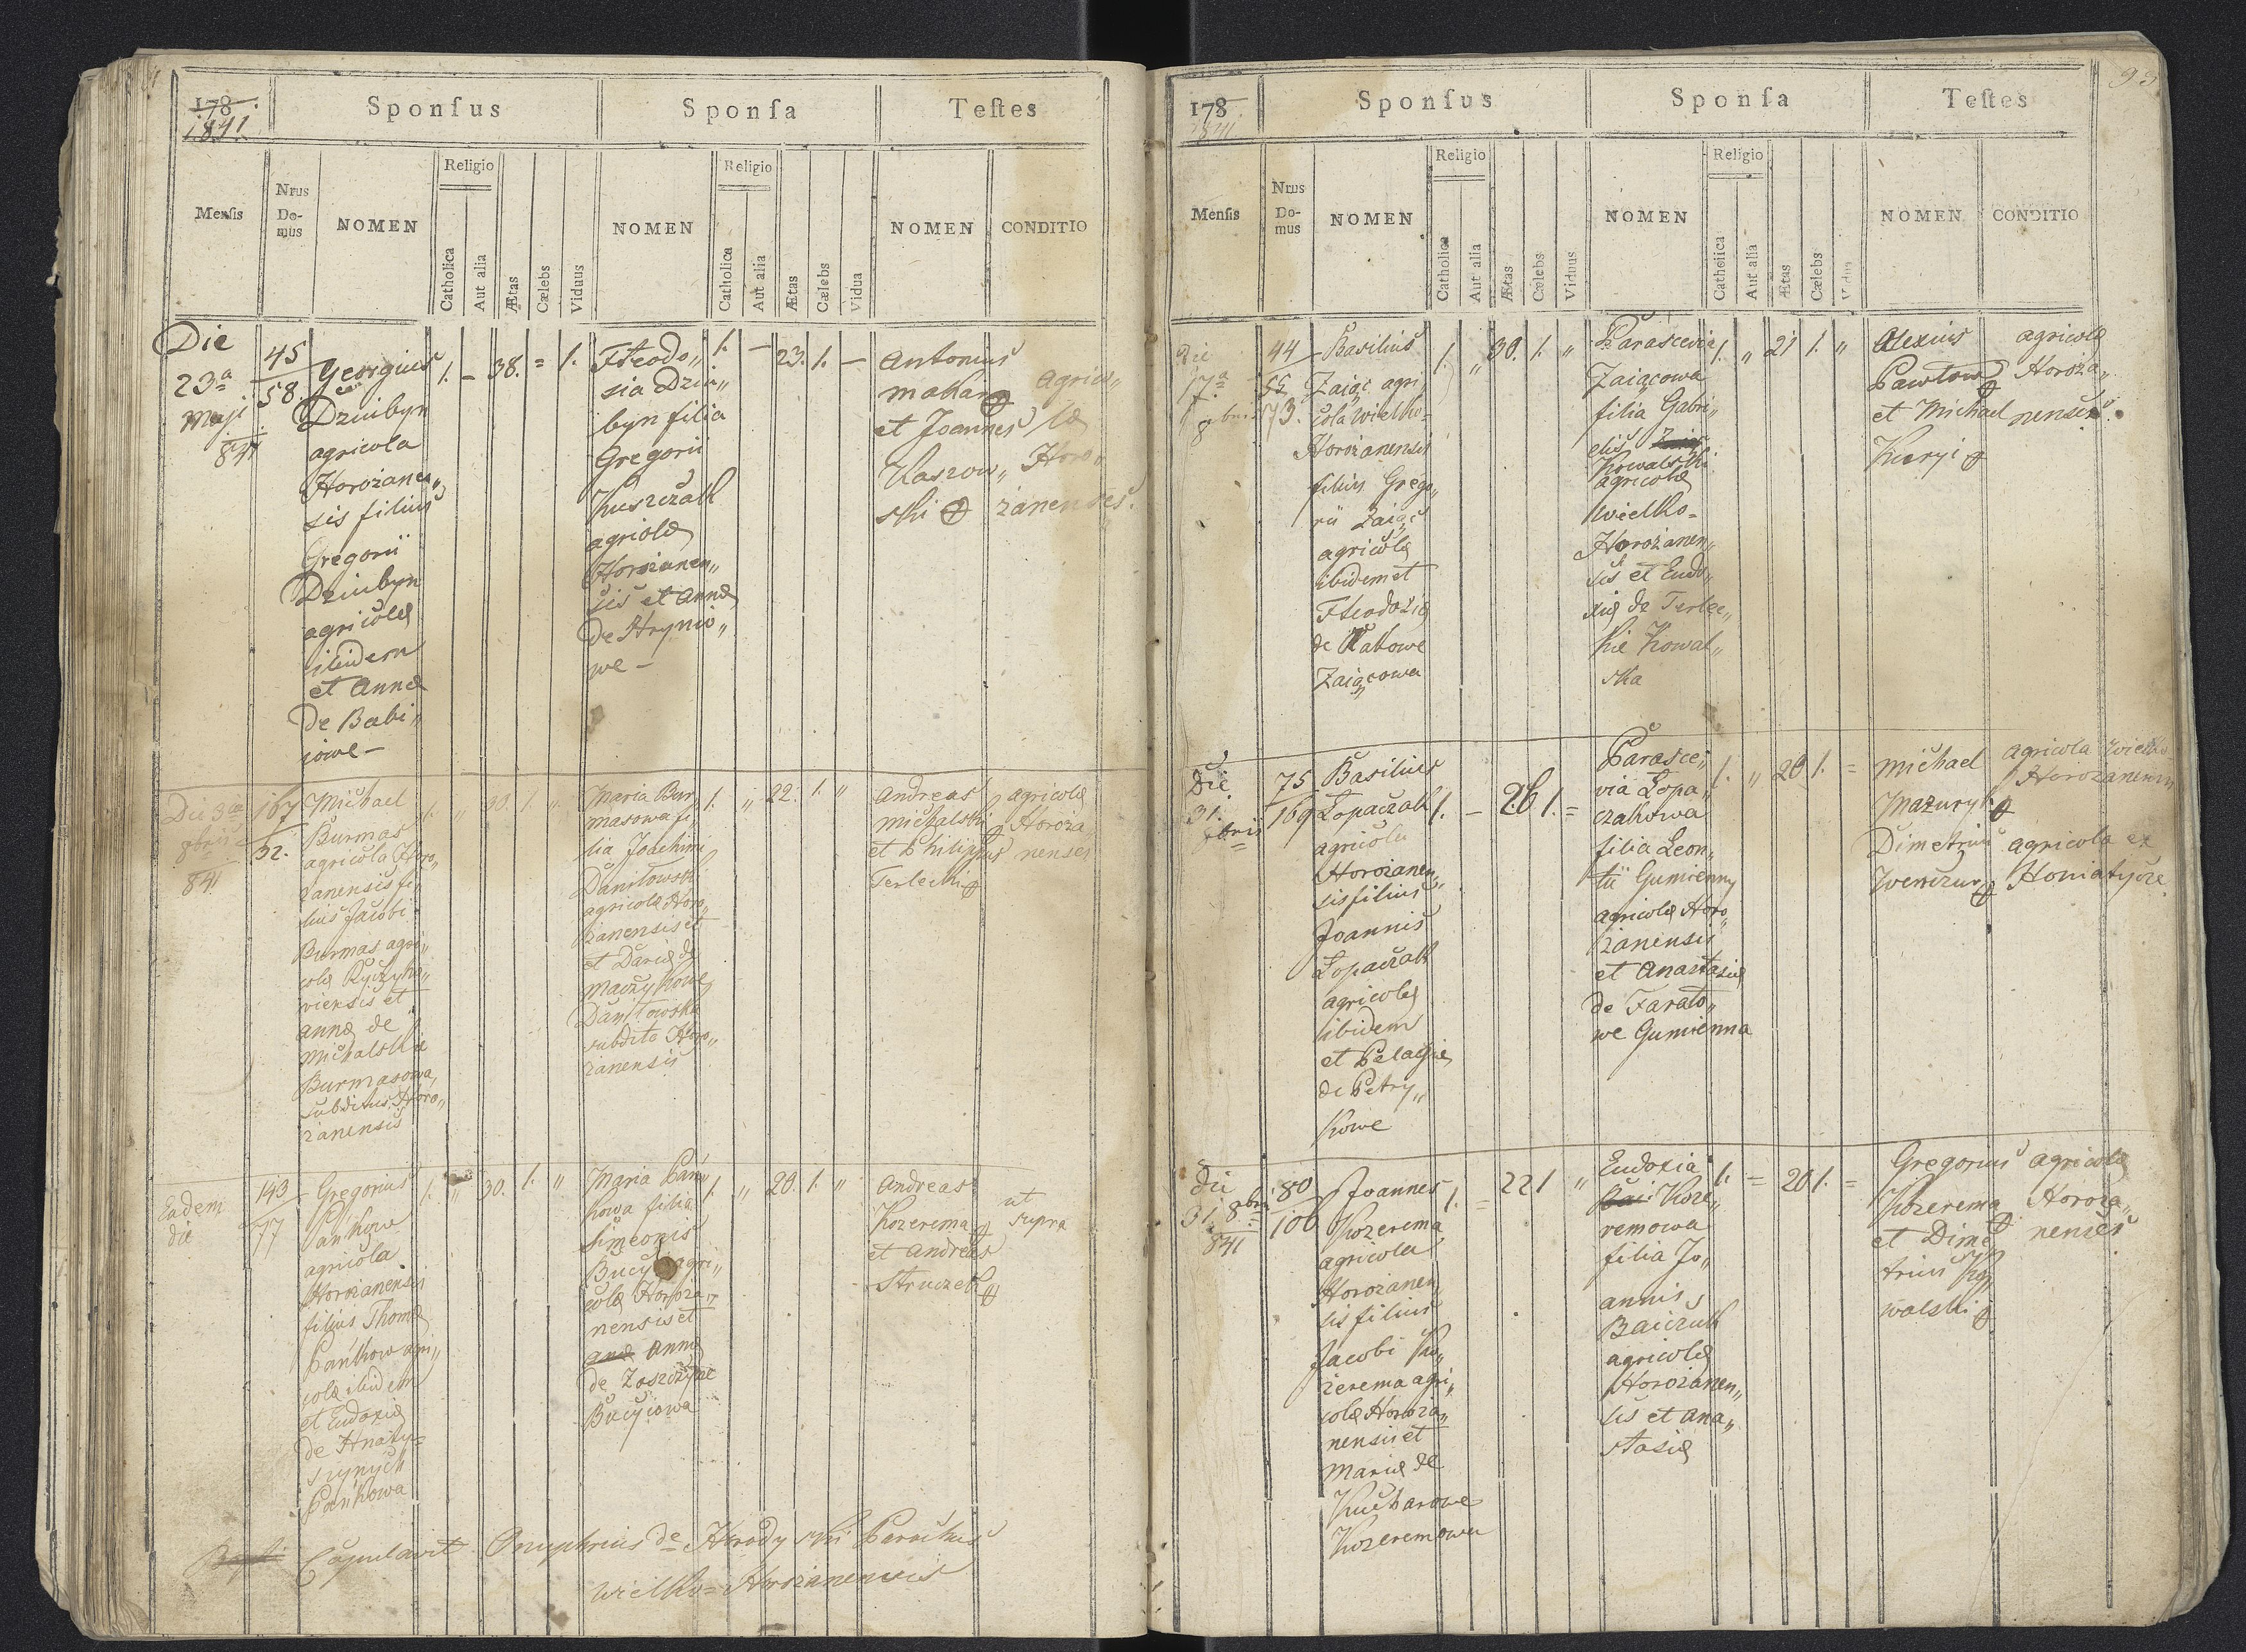 178
1841.
Sponsus
Sponsa
Testes
Mensis
Nrus Do-mus
NOMEN
Religio
Catholica
Aut alia
Ætas
Cælebs
Viduus
NOMEN
Religio
Catholica
Aut alia
Ætas
Cælebs
Vidua
NOMEN
CONDITIO
Die
23a
Maji
841
45
58.
Georgius
Dziubyn
agricola
Horożanen„
sis filius
Gregorii
Dziubyn
agricolæ
ibidem
et Annæ
de Babi„
iowe –
1. – 38. = 1.
Fteodo„
sia Dziu„
byn filia
Gregorii
Kuszczak
agricolæ
Horożanen„
sis et Annæ
de Hrynio„
we –
1. – 23. 1. –
Antonius
et Joannes
Kaszow„
ski
Agrico„
læ
Horo„
żanenses.
Die 3tia
8bris
841
167
32.
Michael
Burmas
agricola Horo„
żanensis fi„
lius Jacobi
Burmas agri„
colæ
viensis et
Annæ de
Michalskie
Burmasowa,
subditus Horo„
żanensis
1. „ 30. 1. „
Maria Bur„
masowa fi„
lia Joachimi
Daniłowski
agricolæ Horo„
żanensis et
et Dariæ de
Daniłowska
subdita Horo„
żanensis
1. „ 22. 1. „
Andreas
Michalski
et Philippus
Terlecki
agricolæ
Horoża
nenses
Eadem
die
143
77
Gregorius
Pańkow
agricola
Horożanensis
filius Thomæ
Pańkow agri„
colæ ibidem
et Eudoxiæ
de Hnaty=
Pańkowa
1. „ 30. 1. „
Maria Pań„
kowa filia
Simeonis
agri„
colæ Horoża„
nensis et
Annæ
de
1. „ 20. 1. „
Andreas
Kozerema
et Andreas
Struczek
ut
supra
Copulavit Onuphrius de Horodyski Parochus
Wielko=Horożanensis
93
178
1841
Sponsus
Sponsa
Testes
Mensis
Nrus Do-mus
NOMEN
Religio
Catholica
Aut alia
Ætas
Cælebs
Viduus
NOMEN
Religio
Catholica
Aut alia
Ætas
Cælebs
Vidua
NOMEN
CONDITIO
Die
17a
8bris
44
55
73.
Basilius
Zaiąc agri
cola Wielko-
Horożanensis
filius Grego„
rii Zaiąc
agricolæ
ibidem et
Fteodosiæ
de
Zaiącowa
1. „ 30. 1. „
Parascevia
Zaiącowa
filia Gabri„
elis
Kowalski
agricolæ
Wielko-
Horożanen„
sis et Eudo„
xiæ de Terlec„
kie Kowal„
ska
1. „ 21 1. „
Alexius
Pawłow
et Michael
agricolæ
Horoża„
nenses.
Die
31.
8bris
75
169
Basilius
Łopaczak
agricola
Horożanen„
sis filius
Joannis
Łopaczak
agricolæ
ibidem
et Pelagiæ
de Petry„
kowe
1. – 26 1. =
Parasce„
via Łopa„
czakowa
filia Leon„
tii Gumienny
agricolæ Horo„
żanensis
et Anastasiæ
de
we Gumienna
1. „ 20 1. =
Michael
Mazuryk
Dimetrius
agricola Wielko
Horożanensis
agricola ex
Honiatycze
Die
31. 8bris
841
80
100
Joannes
Kozerema
agricola
Horożanen„
sis filius
Jacobi Ko„
zerema agri„
colæ Horoża„
nensis et
Mariæ de
Kucharowe
Kozeremowa
1. = 22 1 „
Eudoxia
Koze„
remowa
filia Jo„
annis
Baiczuk
agricolæ
Horożanen„
sis et Ana„
stasiæ
1. = 20 1. =
Gregorius
Kozerema
et Dime„
trius Ko„
walski
agricolæ
Horoża„
nenses